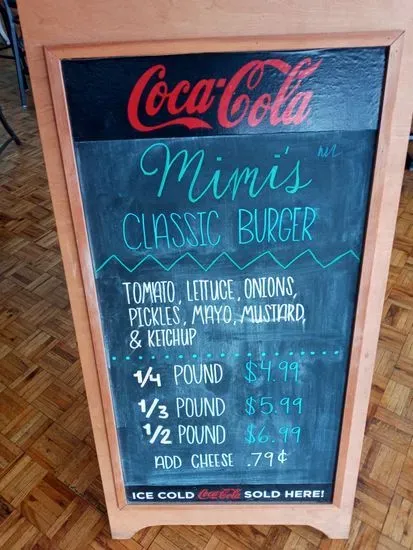 Coca-Cola
Mimi's
CLASSIC BURGER
TOMATO, LETTUCE, ONIONS,
PICKLES, MAYO, MUSTARD,
& KETCHUP
1/4 POUND $4.99
1/3 POUND $5.99
1/2 POUND $6.99
ADD CHEESE .79¢
ICE COLD Coca-Cola SOLD HERE!